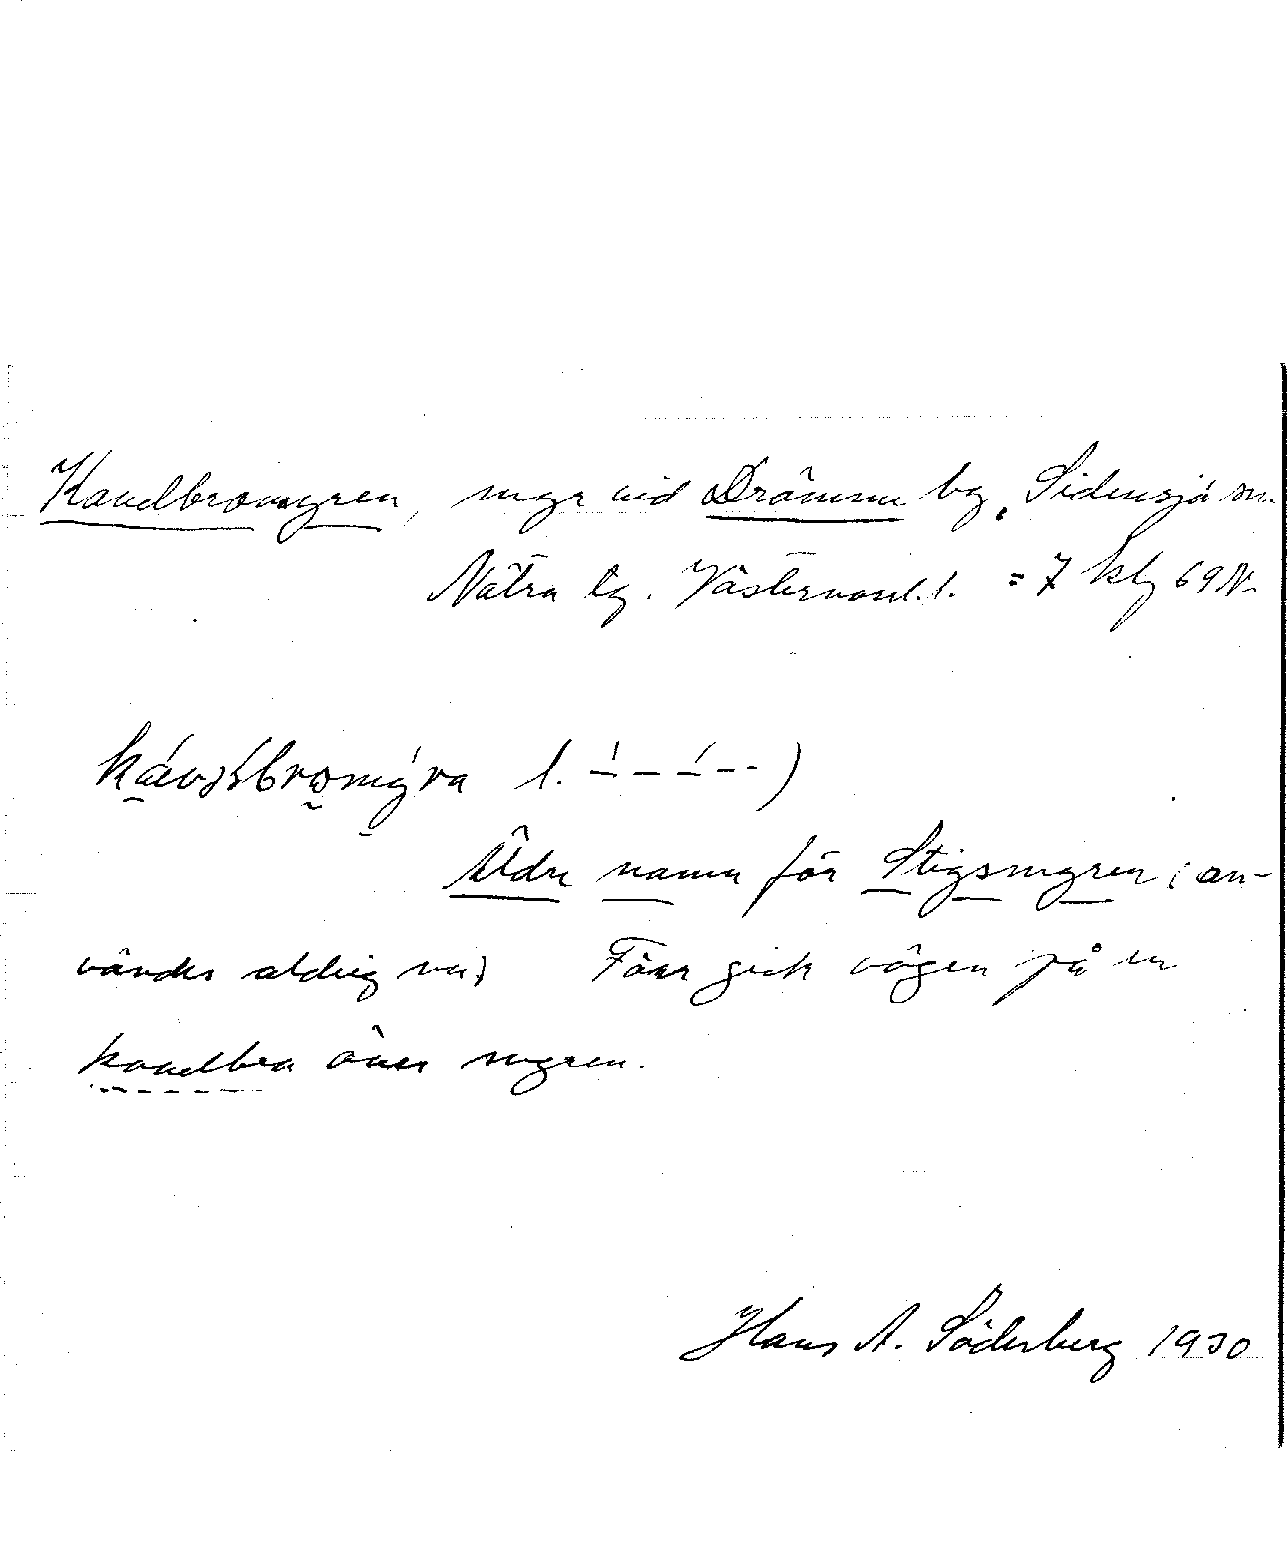 Kavelbromyren, myr vid Drömme by, Sidensjö sn.
Nätra tg. Västernorrl. l. = 7 klg 69 N
l. — — — - - )
Äldre namn för Stigsmyren (an-
vändes aldrig nu) Förr gick vägen på en
kavelbro över myren.
Hans A. Söderberg 1930